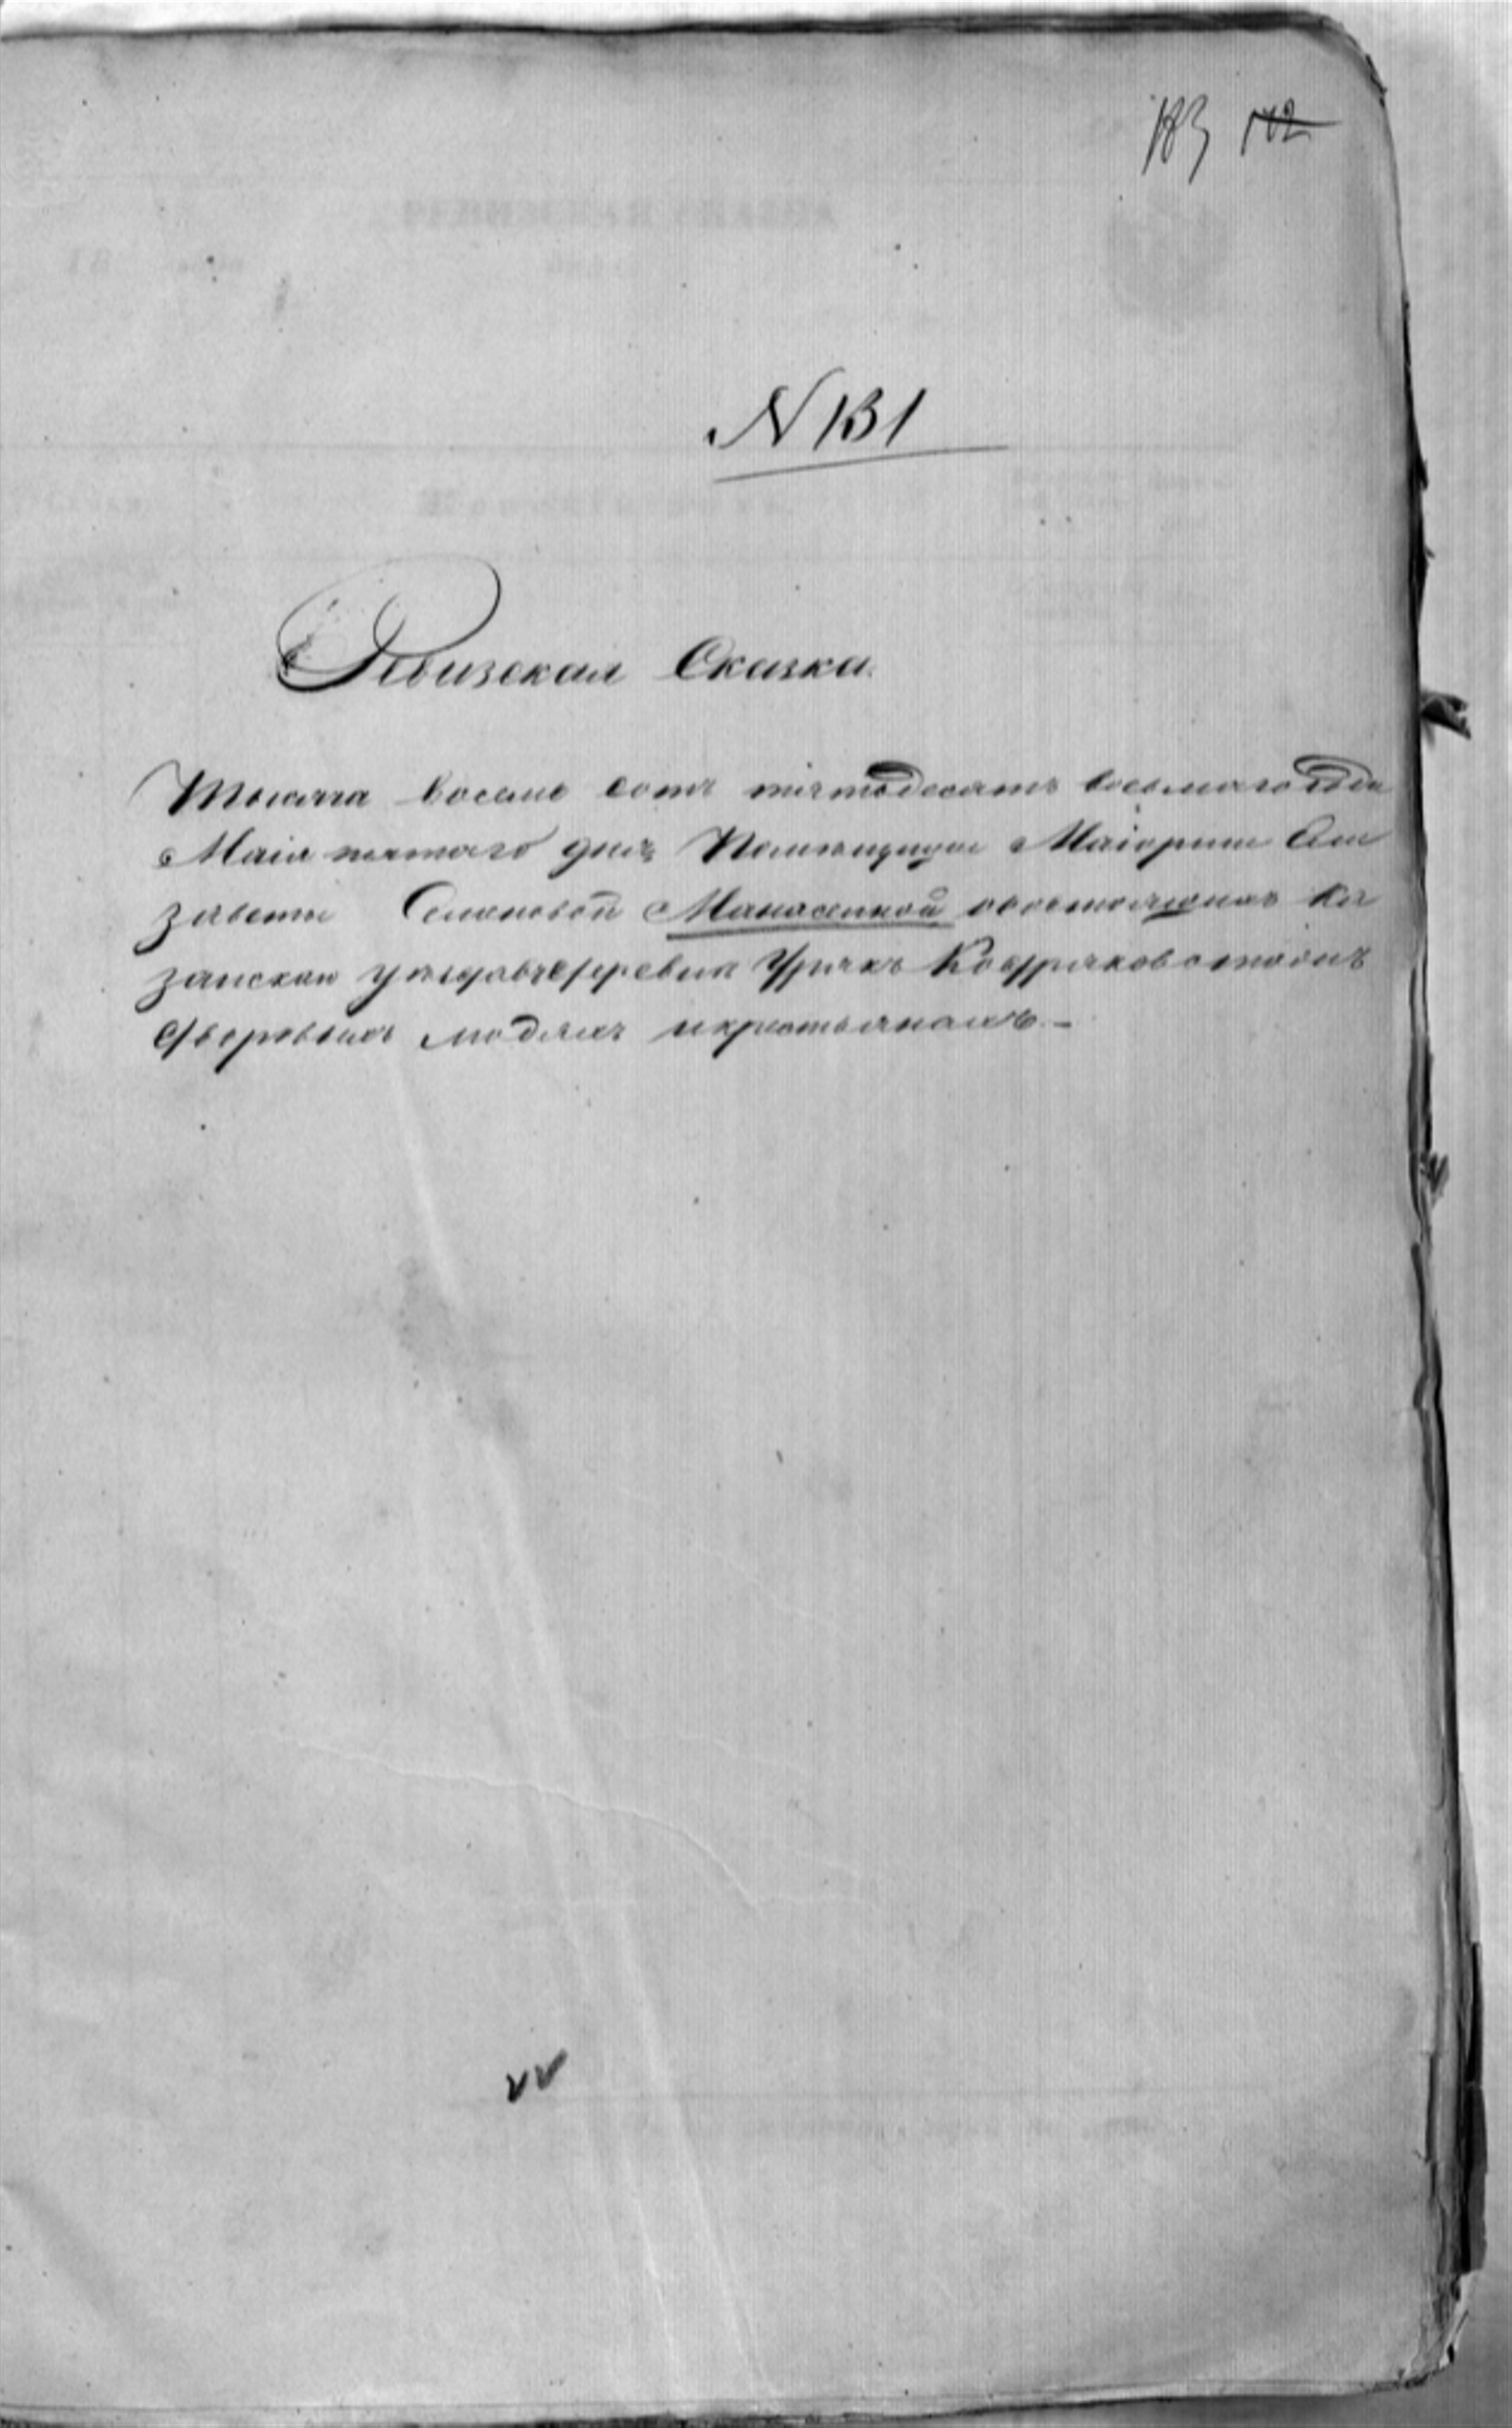 183 182
N 131
Ревизская Сказка.
Тысяча восемь сотъ пятьдесятъ восьмаго года
Маія пятаго дня, Помѣщицы Маіорши Ели
заветы Семеновой Манасеиной о состоящихъ Ка
занскаго уѣзда въ деревнѣ
дворовыхъ людяхъ и крестьянахъ. –